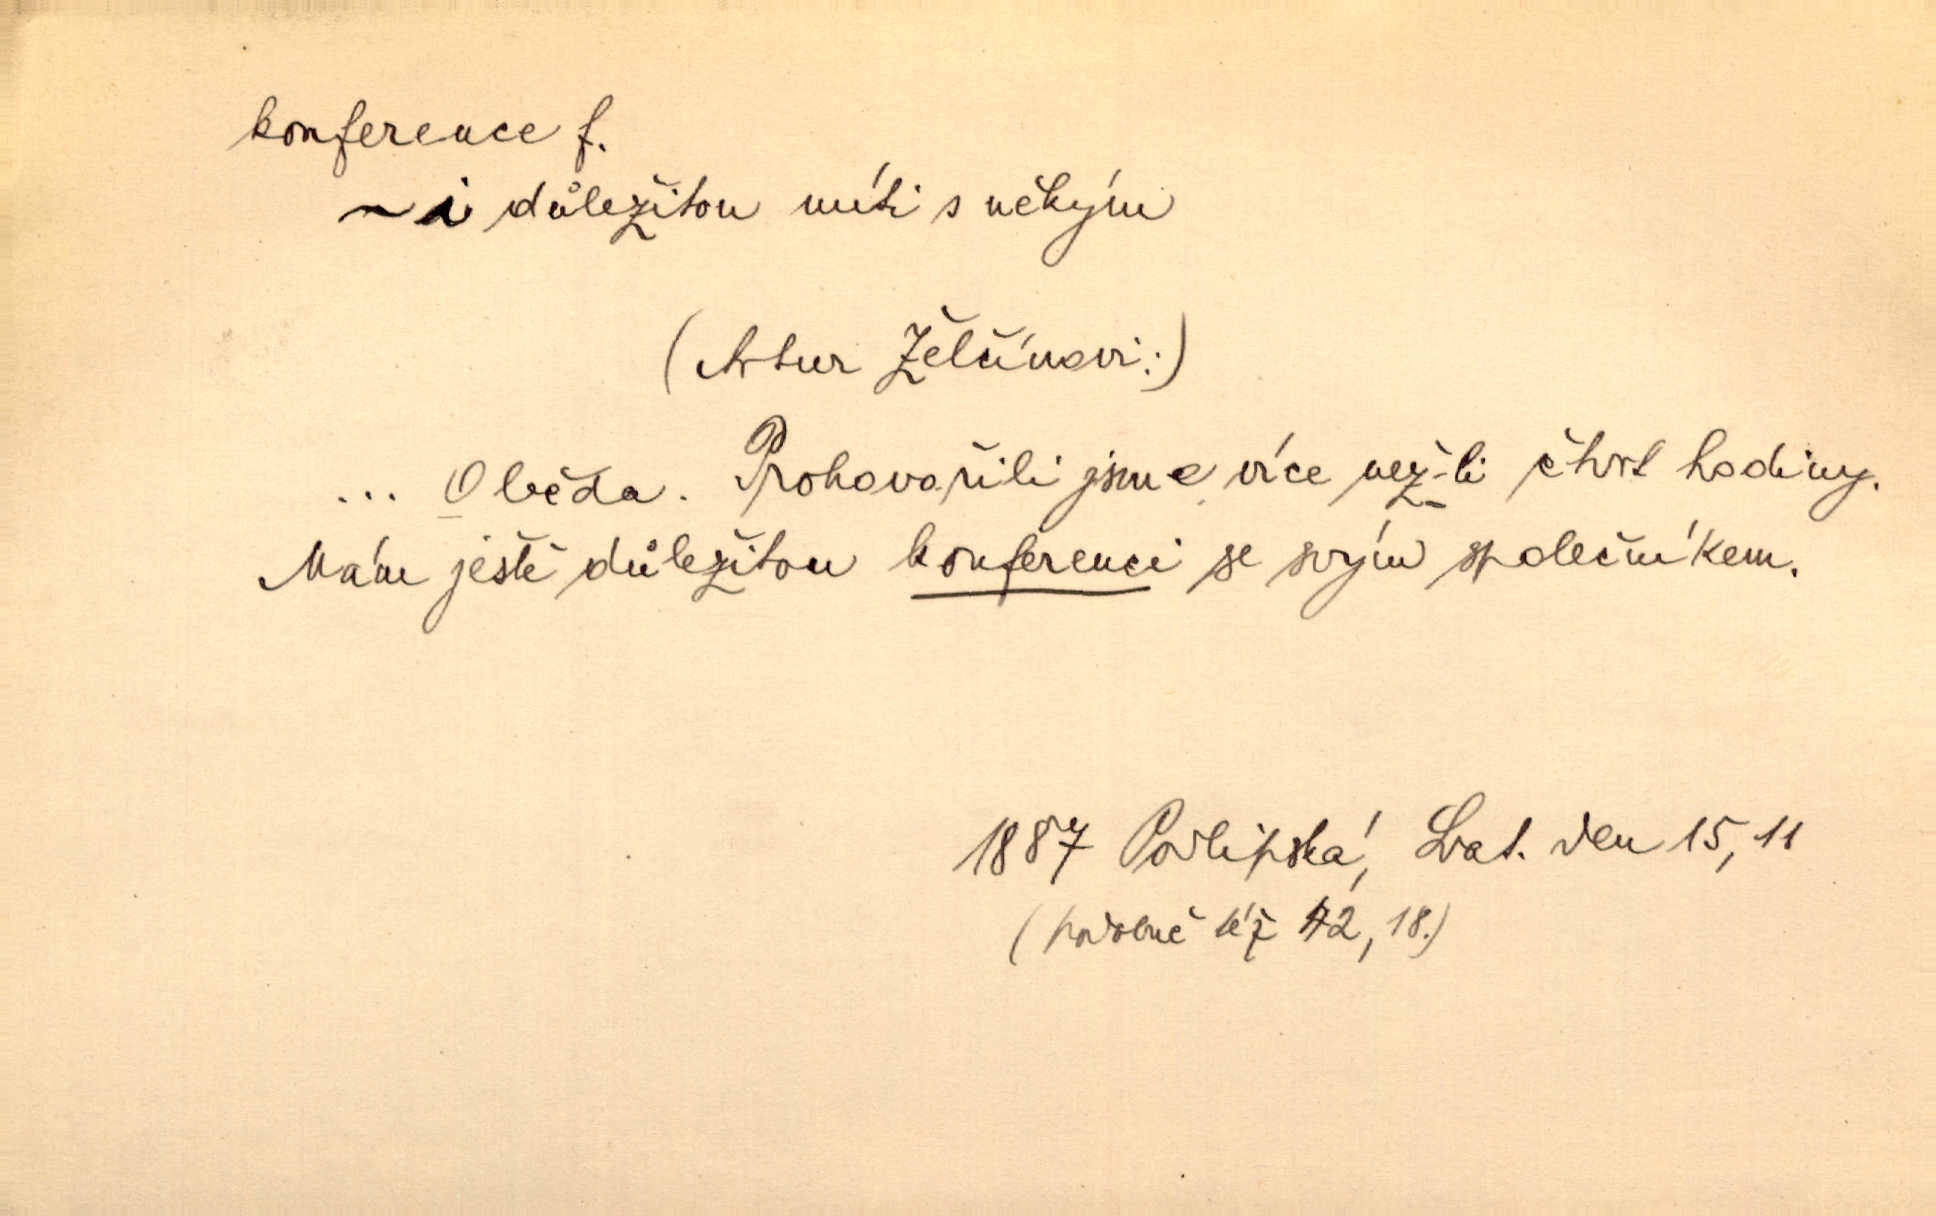 konference f.
~i důležitou míti s někým
(Artur Želčínovi:)
... Oběda. Prohovořili jsme více nežli čtvrt hodiny.
Mám ještě důležitou konferenci se svým společníkem.
1887 Podlipská, Svat. den 15, 11
(podobně též 42, 18.)